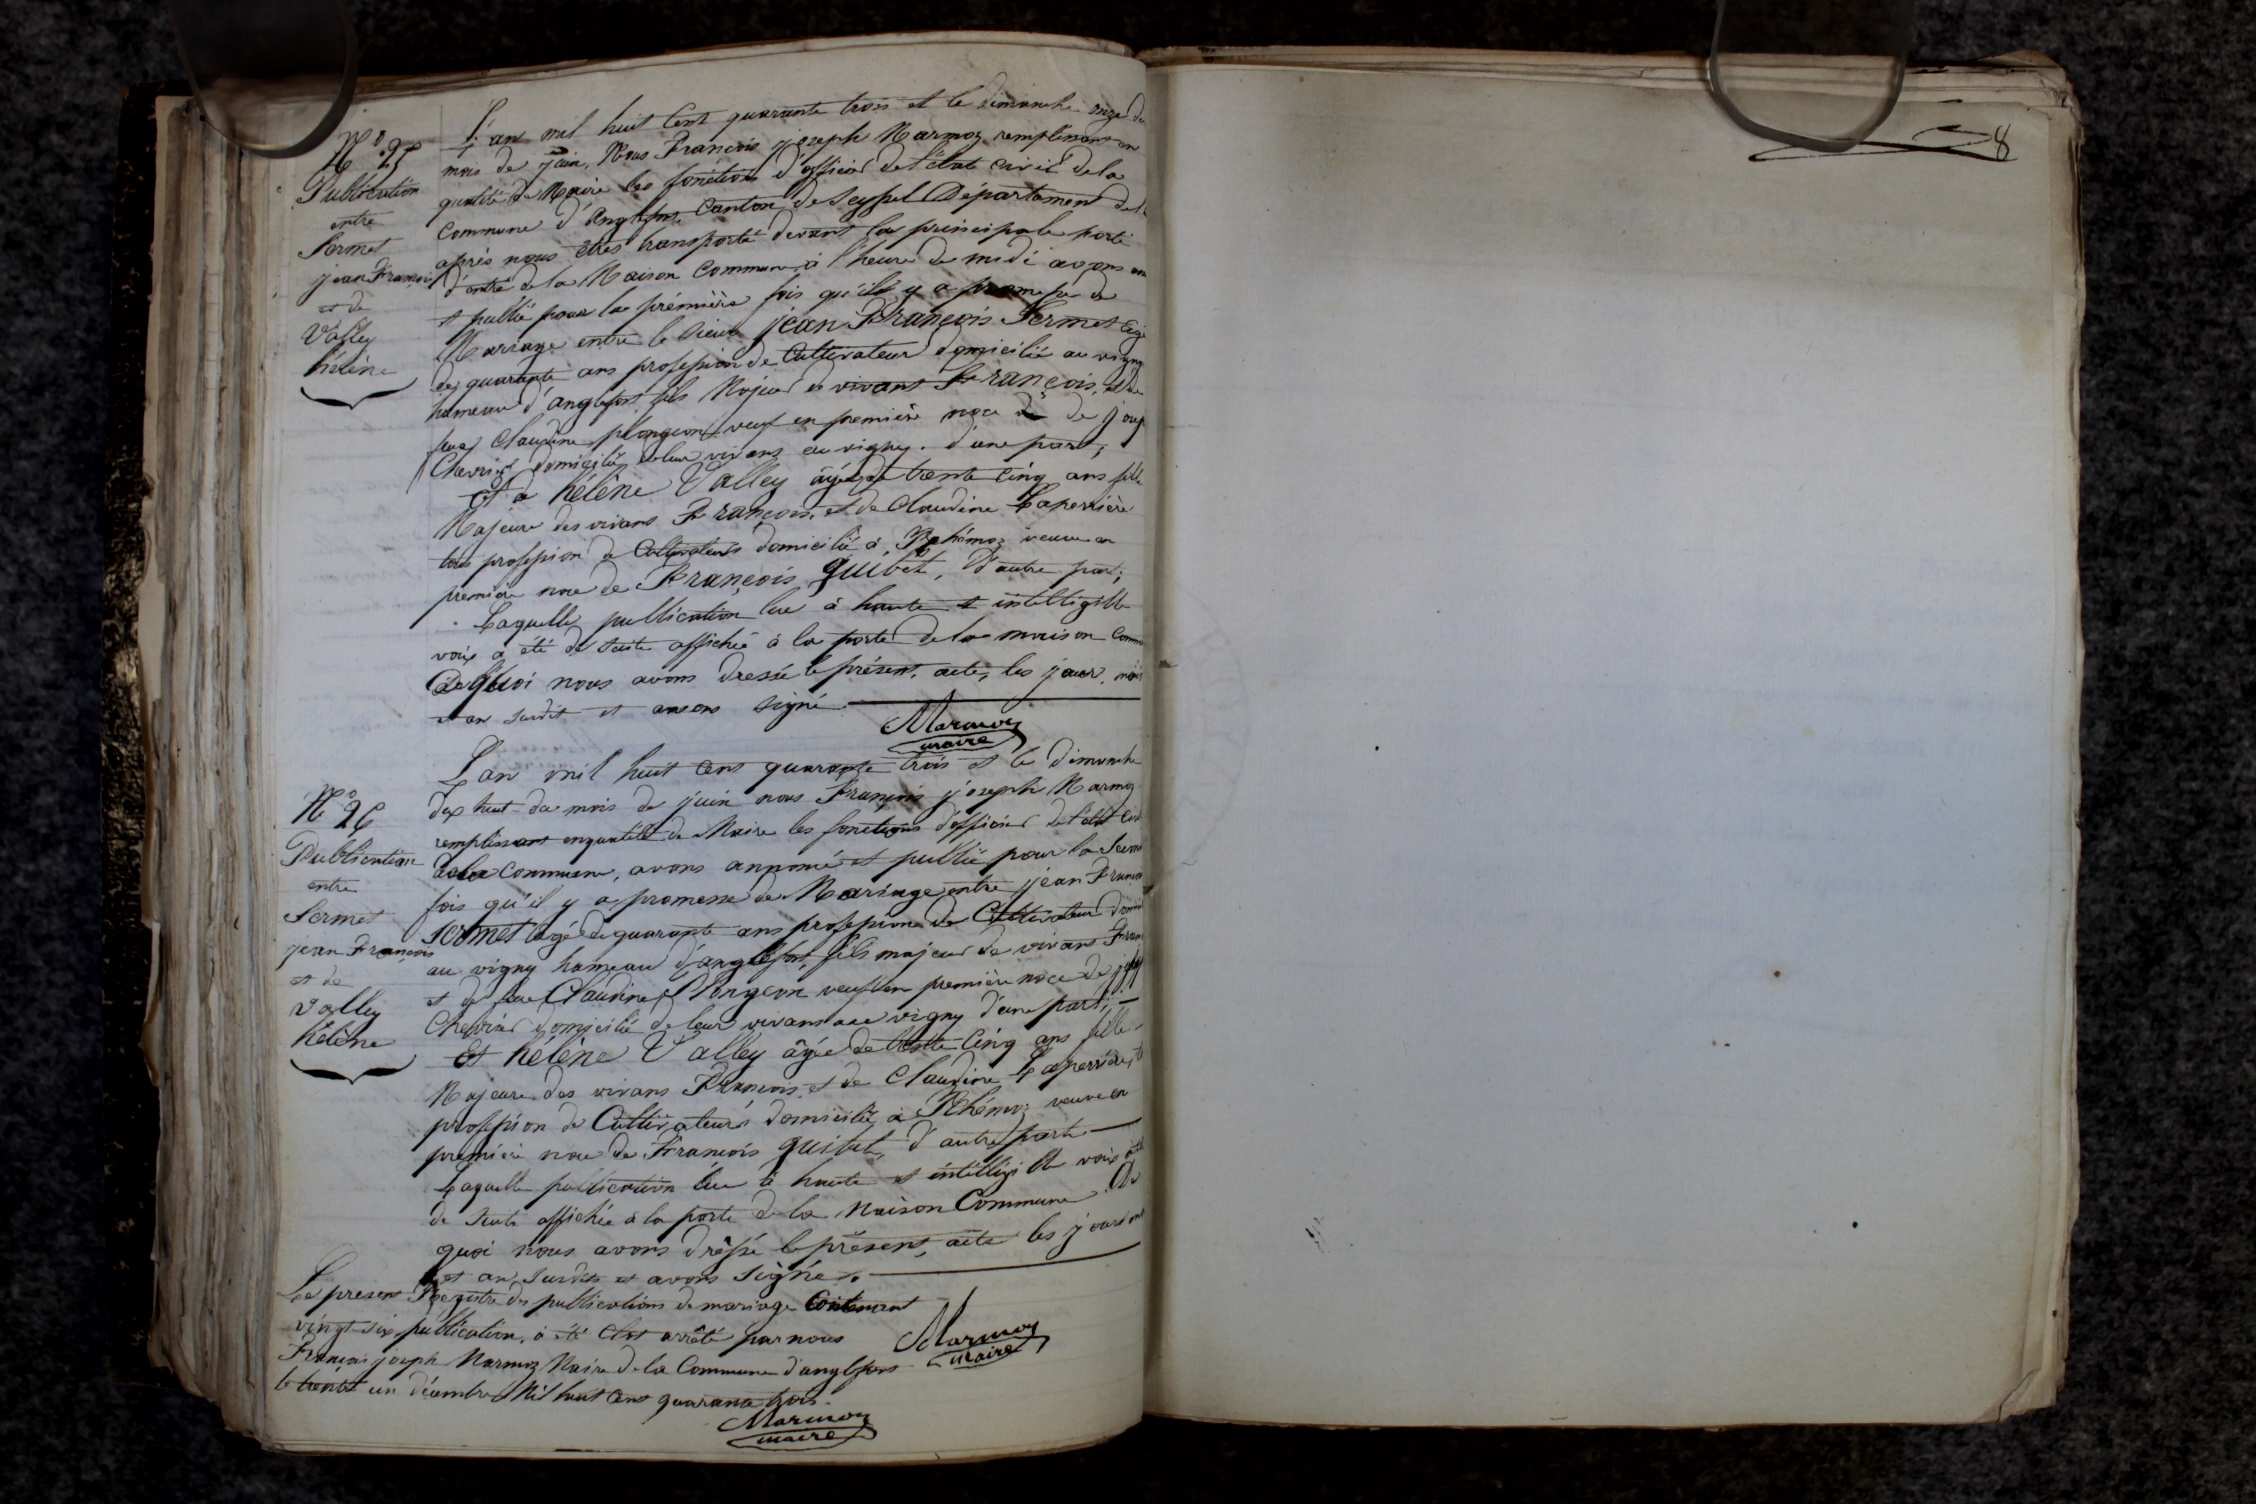 N° 25
Publication
entre
Sermet
jean François
et de
Valley
hélène
L'an mil huit Cent quarante trois et le dimanche onze du
mois de juin, Nous François joseph Marmoz remplissant en
qualité de Maire les fonctions d'officier de l'état civil de la
Commune d'anglefort Canton de Seyssel Département de l'
après nous êtres transporté devant la principale porte
d'entré de la Maison Commune à l'heure de midi avons
et publié pour la première fois qu'il y a promesse de
Mariage entre le sieur jean François Sermet
de quarante ans profession de Cultivateur domicilié au vigny
hameau d'anglefort fils Majeur de vivant François, et de
feue Claudine plongeon veuf en première noce de
Chevrier domicilié de leur vivans au vigny. d'une part,
Et a hélène Valley âgée de trente Cinq ans fille
Majeure des vivans François et de Claudine Laperrière
tous profession de Cultivateurs domicilié à Rhémoz veuve en
première noce de François guibet, D'autre part;
Laquelle publication lue à haute et intelligible
voix a été de suite affiché à la porte de la maison
De quoi nous avons dressé le présent, acte, les jour, mois
et an susdit et avons signé
Marmoz
maire
N° 26
Publication
entre
Sermet
jean François
et de
Valley
hélène
L'an mil huit Cent quarante trois et le dimanche
dix huit du mois de juin nous François joseph Marmoz
remplissant en qualité de Maire les fonctions d'officier de l'état
de la Commune, avons annoncé et publié pour la
fois qu'il y a promesse de Mariage entre jean
Sermet âgé de quarante ans profession de Cultivateur
au vigny hameau d'anglefort, fils majeur de vivant
et de feue Claudine Plongeon veuf en première noce de
Chevrier domicilié de leur vivans au vigny d'une part;
Et hélène Valley âgée de trente Cinq ans fille
Majeure des vivans François et de Claudine Laperrière,
profession de Cultivateurs domicilié à Rhémoz veuve en
première noce de François guibet, d'autre part
Laquelle publication lue à haute et intelligible voix
de suite affichée à la porte de la Maison Commune. De
quoi nous avons dressé le présent, acte les jours
et an susdits et avons signé.
Marmoz
maire
Le présent Registre des publications de mariage Contenant
vingt-six publication, à été Clos arrêté par nous
François joseph Marmoz Maire de la Commune d'anglefort
le trente un décembre Mil huit Cent quarante trois.
Marmoz
maire
8